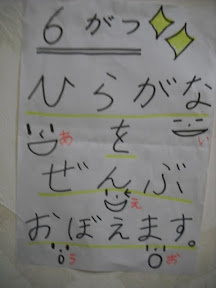 6がつ
ひらがな
あ を い
ぜんぶ
え
おぼえます。
う お